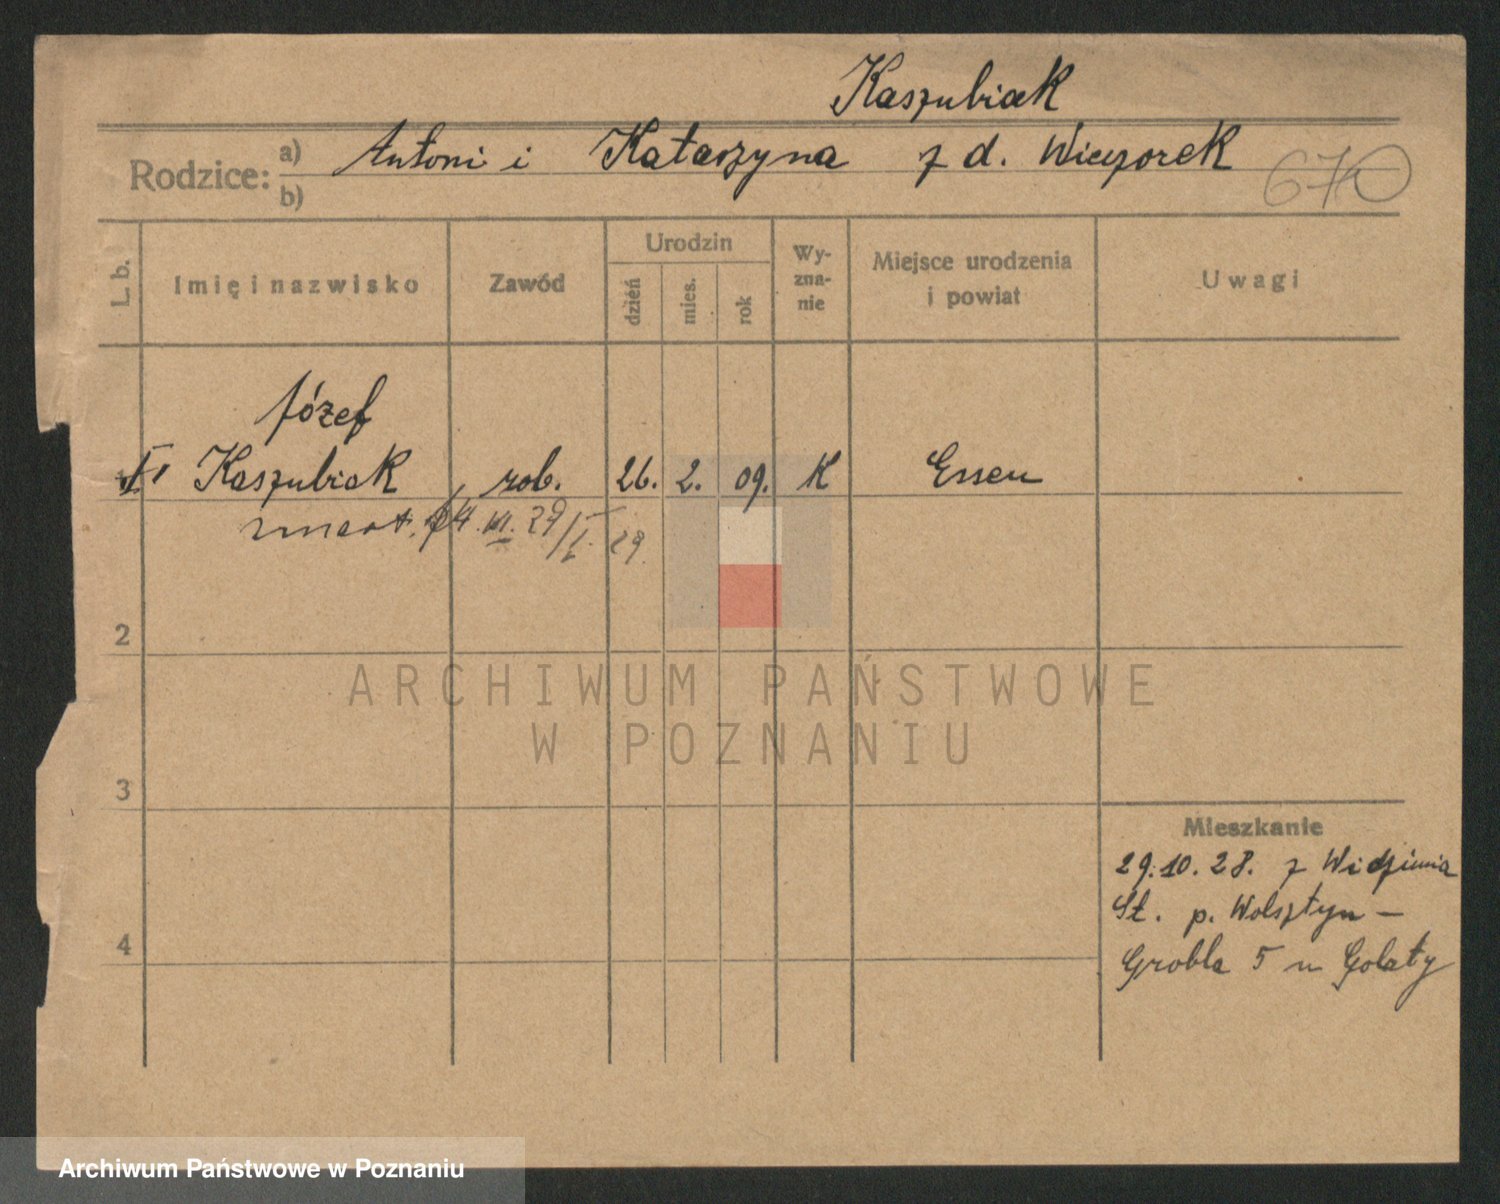 Kaszubiak
Rodzice: a) Antoni i Katarzyna z d. Wieczorek
b)
670
L. b. Imię i nazwisko Zawód Urodzin dzień mies. rok Wyznanie Miejsce urodzenia i powiat Uwagi
Józef
1 Kaszubiak rob. 26. 2. 09. K Essen
zmarł. 24. VI. 29
2
3
4
Mieszkanie
29.10.28. z Widzimia
St. p. Wolsztyn –
Grobla 5 u Golaty
ARCHIWUM PAŃSTWOWE
W POZNANIU
Archiwum Państwowe w Poznaniu